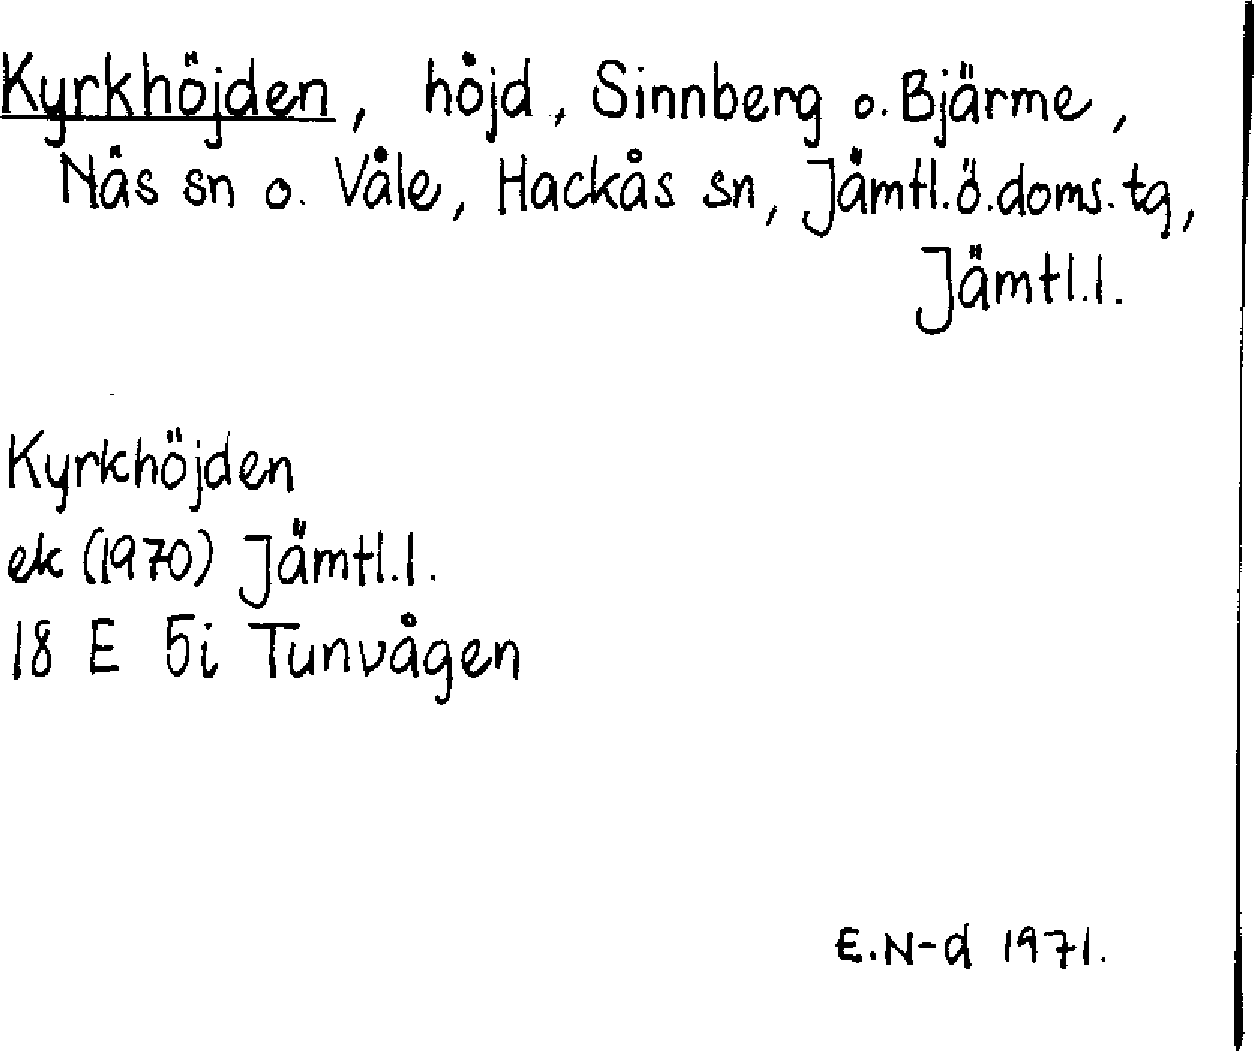 Kyrkhöjden, höjd, Sinnberg o. Bjärme,
Näs sn o. Våle, Hackås sn, Jämtl.ö.doms.tg,
Jämtl.l.
Kyrkhöjden
ek (1970) Jämtl.l.
18 E 5i Tunvågen
E.N-d 1971.